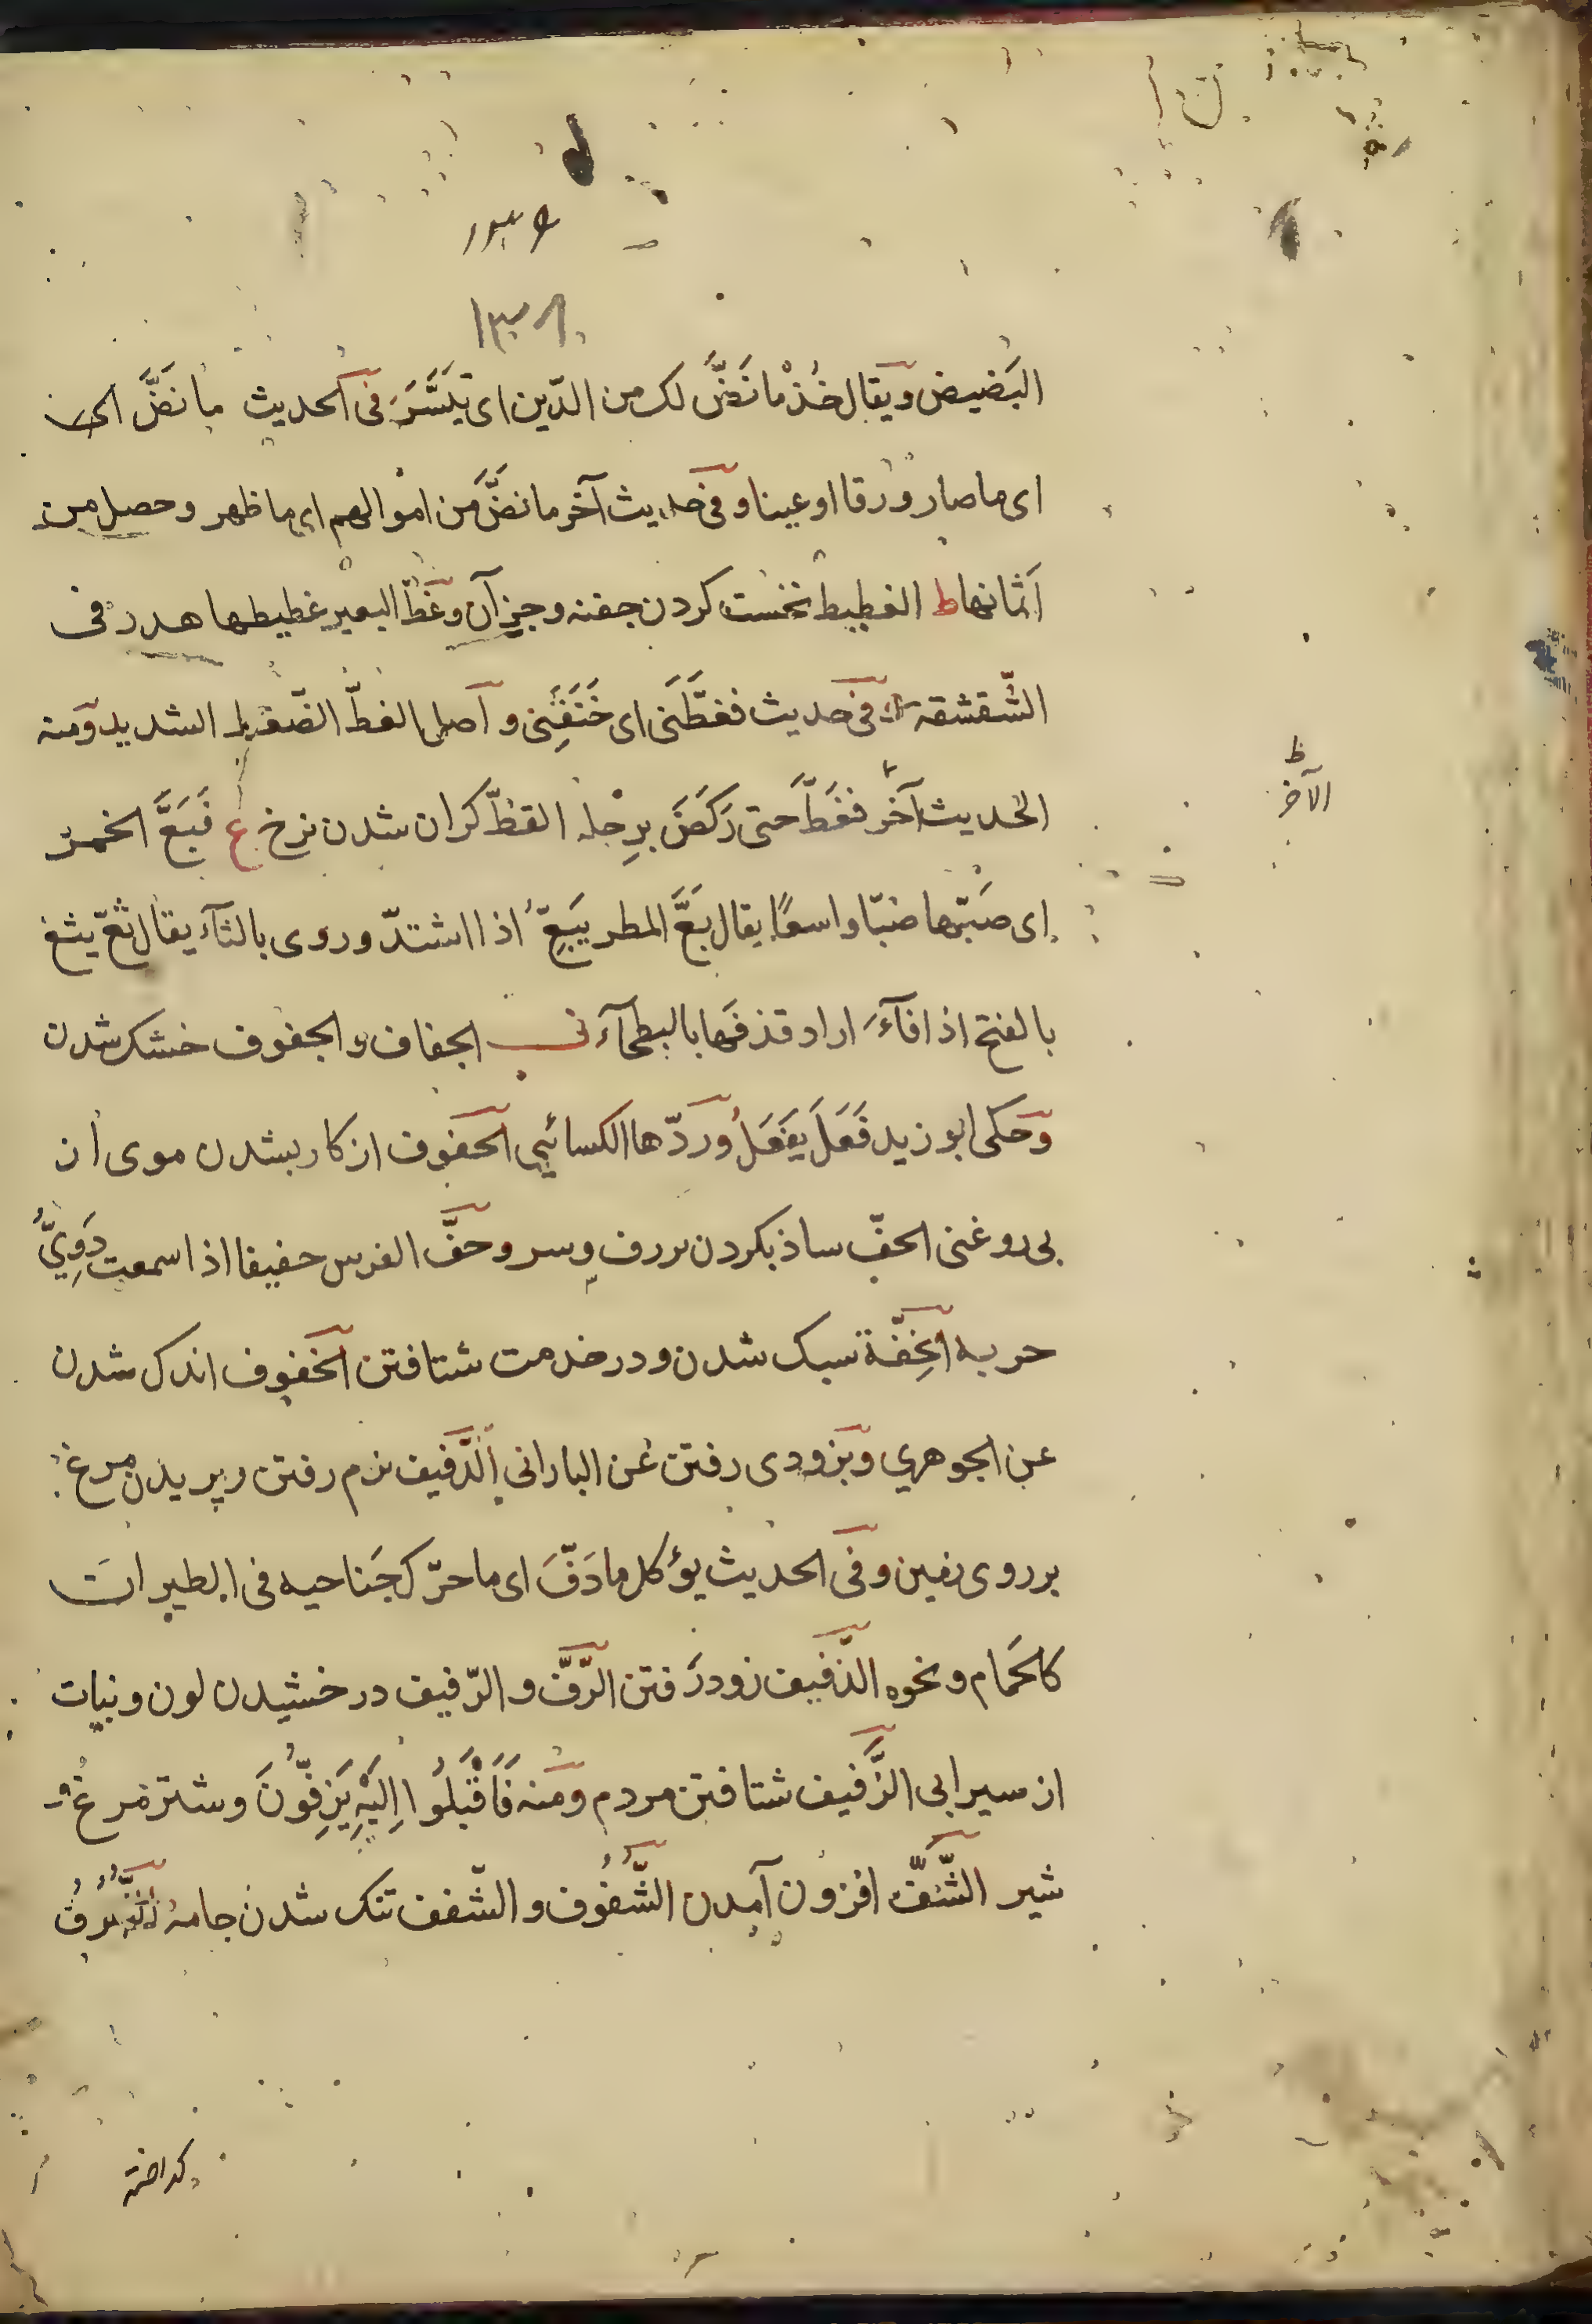 ۱۳۶
۱۳۸
البَضيض ويقال خُذْ ما نَضَّ لک من الدّين ای تيَسَّرَ فی الحديث ما نَضَّ
ای ما صار ورقا او عينا و فی حديث آخر ما نضَّ من اموالهم ای ما ظهر و حصل من
اَثمانها ط الغطيط نخست کردن جفنه وجز آن وغَطّ البعير غطيطها هدر فی
الشّقشقة فی حديث فغطَّنی ای خَنَقَنِی و اصل الغطّ الضّغط الشديد ومنه
الحديث آخر فغَطَّ حتی رَکَضَ برِجْله القظّ کران شدن نرخ ع فَبَعَّ الخمر
ای صَبّها صبّا واسعًا يقال بَعَّ المطر يَبَعّ اذا اشتدّ وروی بالثآء يقال ثعّ يثع
بالفتح اذا قآءَ اراد قذفَها بالبطحآء ف الجفاف والجفوف خشک شدن
وحکی ابو زيد فَعَلَ يَفعَلُ وردّها الکسائی الحفوف از کار بشدن موی از
بی روغنی الحفّ ساذ بکردن بروف وسر وحفَّ الفرس حفيفا اذا سمعت دَوِیَّ
جريه الخِفّة سبک شدن و در خدمت شتافتن الخفوف اندک شدن
عن الجوهري وبزودی رفتن عن البارانی الدَّفيف نرم رفتن و پريدن مرغ
بر روی زمين و فی الحديث يؤکل ما دَفّ ای ما حرّک جَناحيه فی الطيران
کالحَمام ونحوه الذَّفيف زود رفتن الرَّفّ والرّفيف درخشيدن لون و نبات
از سيرابی الزَّفيف شتافتن مردم ومنه فَاَقْبَلُوا اِلَيْهِ يَزِفُّونَ و شترمرغ و
شير الشَّفّ افزون آمدن الشُّفُوف والشّفف تنک شدن جامهٔ
الآخر
ظ
کداخته